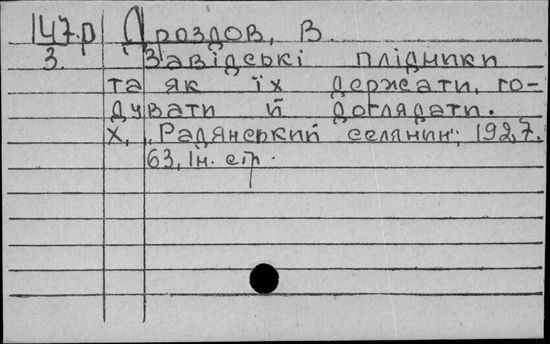 147.р Дроздов, В.
3. Завідські плідники
та як їх держати, го-
дувати й доглядати.
Х., "Радянський селянин", 1927.
63, Ін. стр.